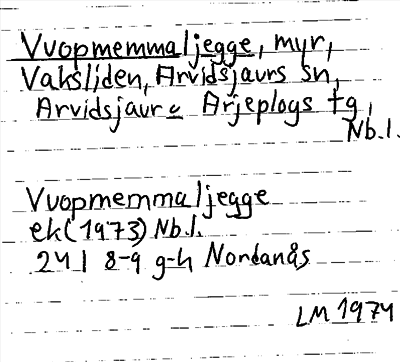 Vuopmemmaljegge, myr,
Vaksliden, Arvidsjaurs sn,
Arvidsjaur o Arjeplogs tg,
Nb.l.
Vuopmemmaljegge
ek (1973) Nb.l.
24 I 8-9 g-h Nordanås
LM 1974